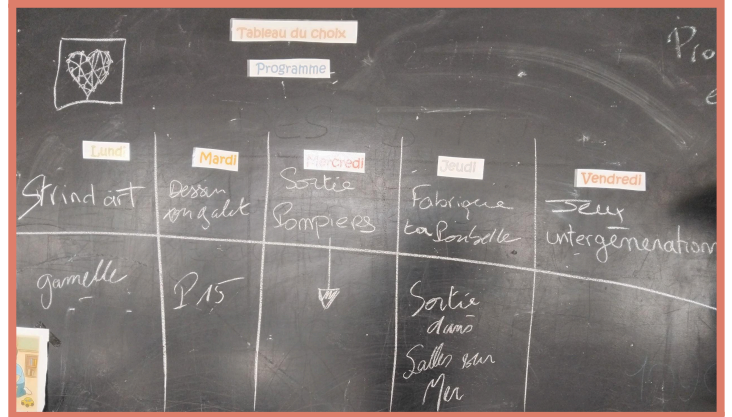 Tableau du choix
Programme
Pio
e
Lundi
Mardi
Mercredi
Jeudi
Vendredi
Strind art
Dessin
sur galet
Sortie
Pompiers
Fabrique
ta Poubelle
Jeux
intergémenation
gamelle
P 15
Sortie
dans
Salles sur
Mer